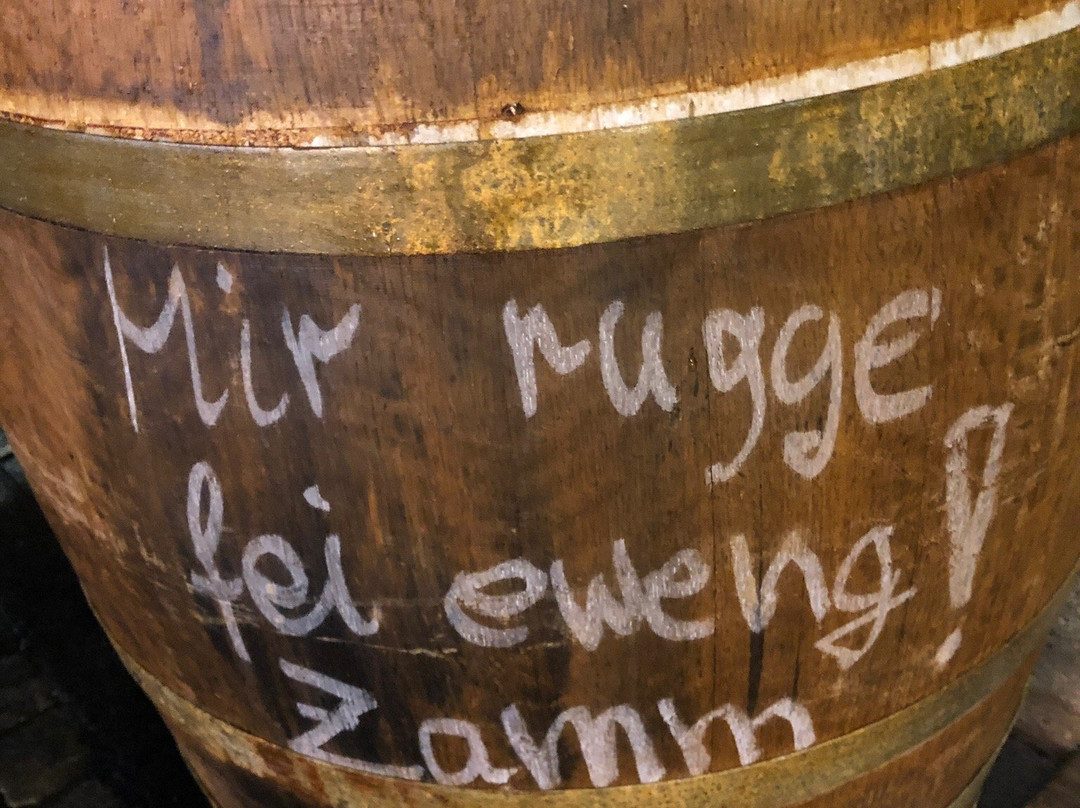 Mir rugge
fei eweng!
Zamm